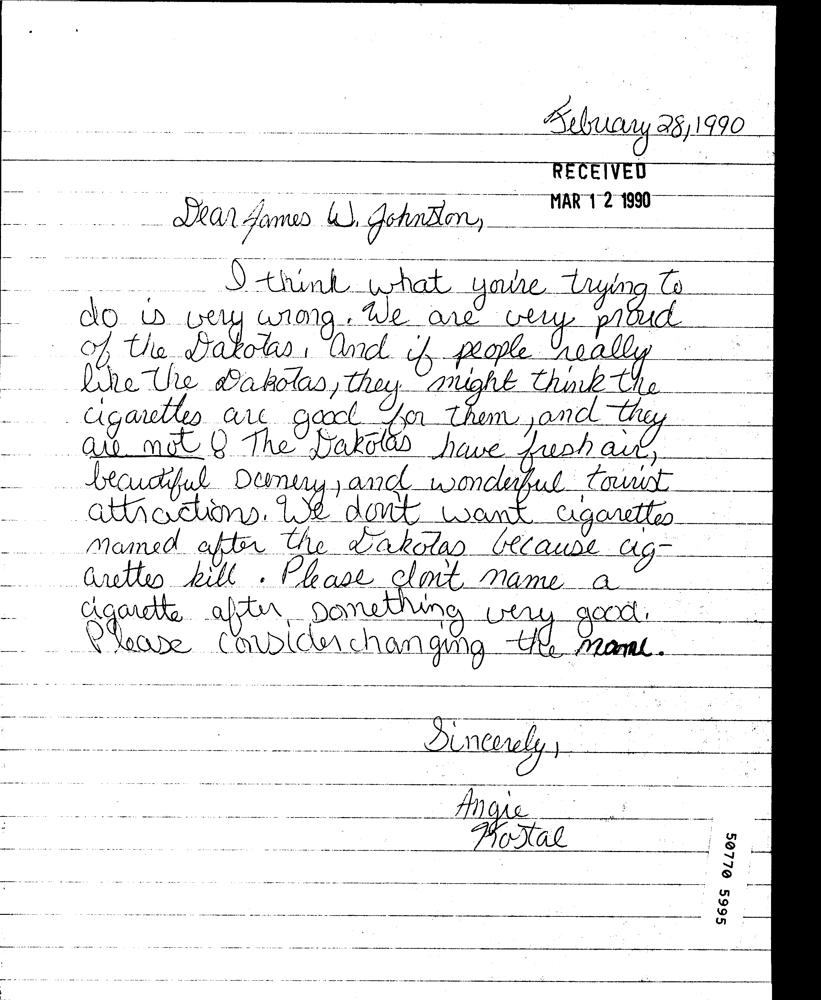 February 28, 1990
RECEIVED
MAR 12 1990
Dear James W. Johnston,
I think what you're trying to
do is very wrong. We are very proud
of the Dakotas, and if people really
like the Dakotas, they might think the
cigarettes are good for them, and they
are not! The Dakotas have fresh air,
beautiful scenery, and wonderful tourist
attractions. We don't want cigarettes
named after the Dakotas because cig-
arettes kill. Please don't name a
cigarette after something very good.
Please consider changing the name.
Sincerely,
Angie
Kostal
50770 5995